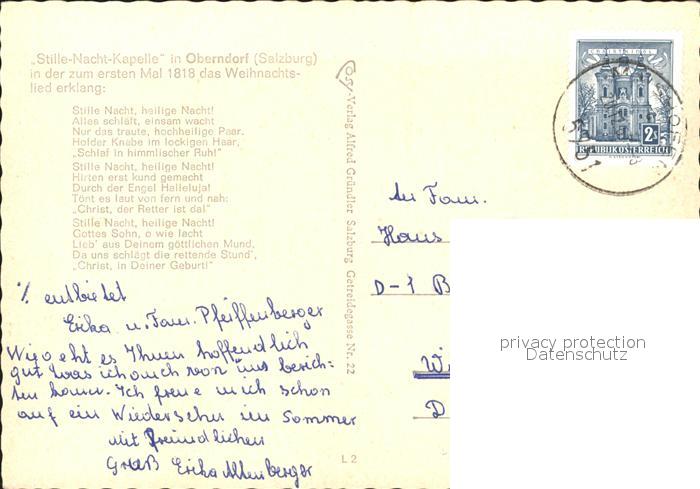 „Stille-Nacht-Kapelle" in Oberndorf (Salzburg)
in der zum ersten Mal 1818 das Weihnachts-
lied erklang:
Stille Nacht, heilige Nacht!
Alles schläft, einsam wacht
Nur das traute, hochheilige Paar.
Holder Knabe im lockigen Haar,
„Schlaf in himmlischer Ruh!"
Stille Nacht, heilige Nacht!
Hirten erst kund gemacht
Durch der Engel Halleluja!
Tönt es laut von fern und nah:
„Christ, der Retter ist da!"
Stille Nacht, heilige Nacht!
Gottes Sohn, o wie lacht
Lieb' aus Deinem göttlichen Mund,
Da uns schlägt die rettende Stund',
„Christ, in Deiner Geburt!"
entbietet
Erika u. Fam. Pfeiffenberger
Wie geht es Ihnen hoffendlich
gut was ich auch von uns berich=
ten kann. Ich freue mich schon
auf ein Wiedersehn im Sommer
mit freindlichen
Gruß Erika Altenberger
Cosy-Verlag Alfred Gründler Salzburg Getreidegasse Nr. 22
L 2
CHRISTKINDL
2S
REPUBLIK ÖSTERREICH
An Fam.
Hans
D-1 B
Wi
D
privacy protection
Datenschutz